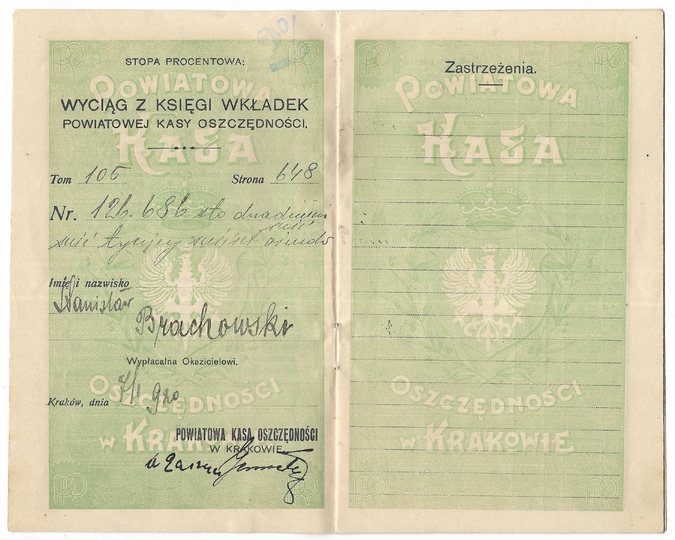 STOPA PROCENTOWA:
2%
WYCIĄG Z KSIĘGI WKŁADEK
POWIATOWEJ KASY OSZCZĘDNOŚCI.
Tom 105 Strona 648
Nr. 126.686 sto dwadzieścia
sześć tysięcy sześćset
sześć
Imię i nazwisko
Stanisław
Brachowski
Wypłacalna Okazicielowi.
Kraków, dnia 920
POWIATOWA KASA OSZCZĘDNOŚCI
W KRAKOWIE
POWIATOWA
KASA
OSZCZĘDNOŚCI
W KRAKOWIE
Zastrzeżenia.
POWIATOWA
KASA
OSZCZĘDNOŚCI
W KRAKOWIE